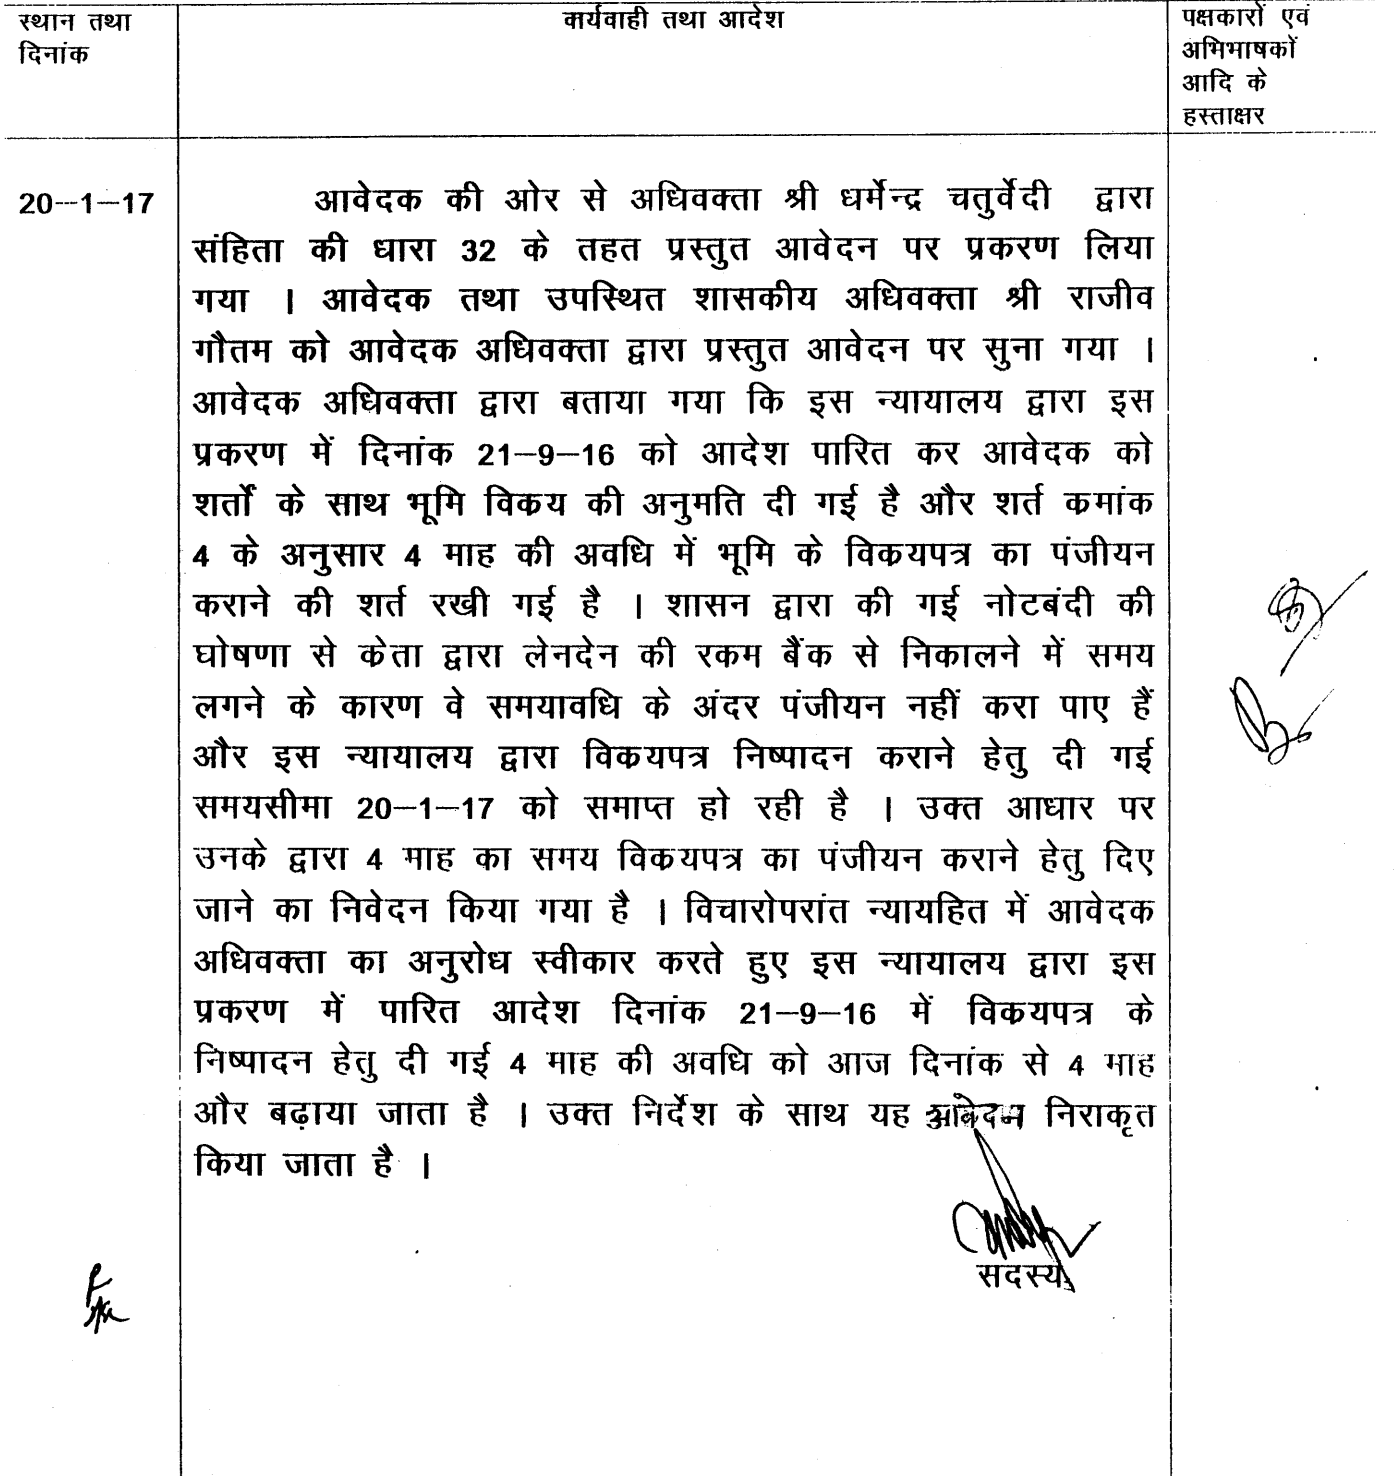 स्थान तथा
दिनांक
कार्यवाही तथा आदेश
पक्षकारों एवं
अभिभाषकों
आदि के
हस्ताक्षर
20-1-17
आवेदक की ओर से अधिवक्ता श्री धर्मेन्द्र चतुर्वेदी द्वारा
संहिता की धारा 32 के तहत प्रस्तुत आवेदन पर प्रकरण लिया
गया । आवेदक तथा उपस्थित शासकीय अधिवक्ता श्री राजीव
गौतम को आवेदक अधिवक्ता द्वारा प्रस्तुत आवेदन पर सुना गया ।
आवेदक अधिवक्ता द्वारा बताया गया कि इस न्यायालय द्वारा इस
प्रकरण में दिनांक 21-9-16 को आदेश पारित कर आवेदक को
शर्तों के साथ भूमि विकय की अनुमति दी गई है और शर्त कमांक
4 के अनुसार 4 माह की अवधि में भूमि के विकयपत्र का पंजीयन
कराने की शर्त रखी गई है । शासन द्वारा की गई नोटबंदी की
घोषणा से केता द्वारा लेनदेन की रकम बैंक से निकालने में समय
लगने के कारण वे समयावधि के अंदर पंजीयन नहीं करा पाए हैं
और इस न्यायालय द्वारा विकयपत्र निष्पादन कराने हेतु दी गई
समयसीमा 20-1-17 को समाप्त हो रही है । उक्त आधार पर
उनके द्वारा 4 माह का समय विकयपत्र का पंजीयन कराने हेतु दिए
जाने का निवेदन किया गया है । विचारोपरांत न्यायहित में आवेदक
अधिवक्ता का अनुरोध स्वीकार करते हुए इस न्यायालय द्वारा इस
प्रकरण में पारित आदेश दिनांक 21-9-16 में विकयपत्र के
निष्पादन हेतु दी गई 4 माह की अवधि को आज दिनांक से 4 माह
और बढ़ाया जाता है । उक्त निर्देश के साथ यह आवेदन निराकृत
किया जाता है ।
सदस्य